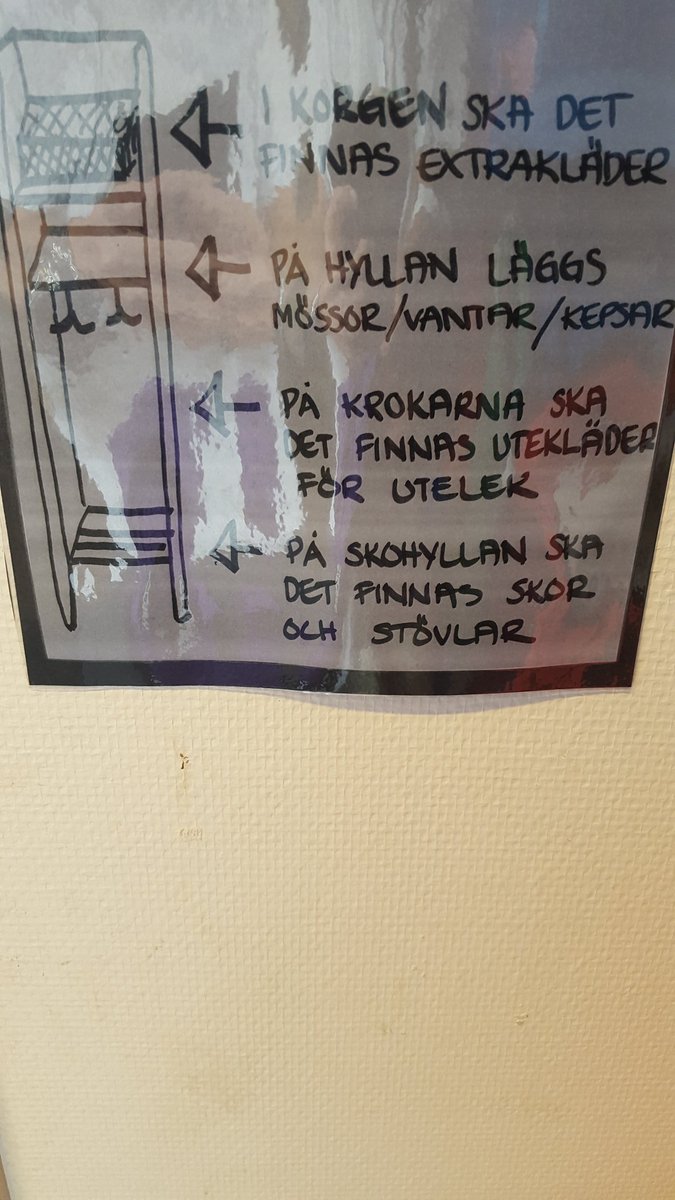 I KORGEN SKA DET
FINNAS EXTRAKLÄDER
PÅ HYLLAN LÄGGS
MÖSSOR/VANTAR/KEPSAR
PÅ KROKARNA SKA
DET FINNAS UTEKLÄDER
FÖR UTELEK
PÅ SKOHYLLAN SKA
DET FINNAS SKOR
OCH STÖVLAR